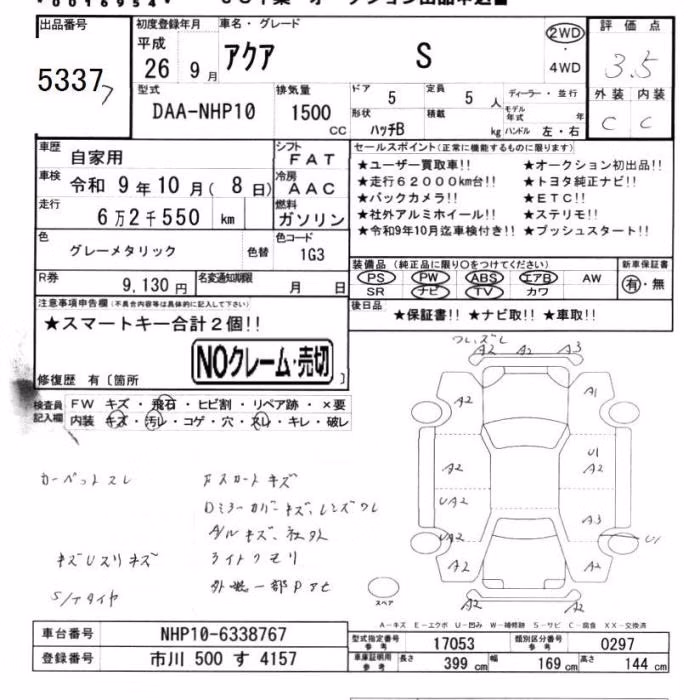 出品番号
53377
初度登録年月
平成
26 9月
車名・グレード
アクア S
2WD
・
4WD
評価点
3.5
型式
DAA-NHP10
排気量
1500
CC
ドア
5
定員
5人
ディーラー・並行
外装 内装
C C
形状
ハッチB
積載
kg
モデル年式 年
ハンドル 左・右
車歴
自家用
シフト
FAT
セールスポイント(正常に機能するものに限ります)
★ユーザー買取車!! ★オークション初出品!!
車検
令和 9年10月( 8日)
冷房
AAC
★走行62000km台!! ★トヨタ純正ナビ!!
★バックカメラ!! ★ETC!!
走行
6万2千550 km
燃料
ガソリン
★社外アルミホイール!! ★ステリモ!!
★令和9年10月迄車検付き!! ★プッシュスタート!!
色
グレーメタリック
色替
色コード
1G3
装備品(純正品に限り○をつけてください)
新車保証書
PS PW ABS エアB AW
SR ナビ TV カワ
有・無
R券
9,130円
名変通知期限
月 日
後日品
★保証書!! ★ナビ取!! ★車取!!
注意事項申告欄(不具合内容等は具体的に記入して下さい)
★スマートキー合計2個!!
NOクレーム・売切
修復歴 有〔箇所 〕
検査員記入欄
FW キズ・飛石・ヒビ割・リペア跡・×要
内装 キズ・汚レ・コゲ・穴・スレ・キレ・破レ
カーペットスレ
Fスカートキズ
Dミラーカバーキズ、レンズワレ
A/Wキズ、社外
キズUスリキズ
ライトクモリ
S/Tタイヤ
A2 A2 A3
A2 A1
A2
U1
A2
UA2
A3
UA2
U1
A2 A2
A2 A2
スペア
A-キズ E-エクボ U-凹み W-補修跡 S-サビ C-腐食 XX-交換済
車台番号
NHP10-6338767
型式指定番号
参考
17053
類別区分番号
参考
0297
登録番号
市川 500 す 4157
車庫証明用
参考
長さ
399 cm
幅
169 cm
高さ
144 cm